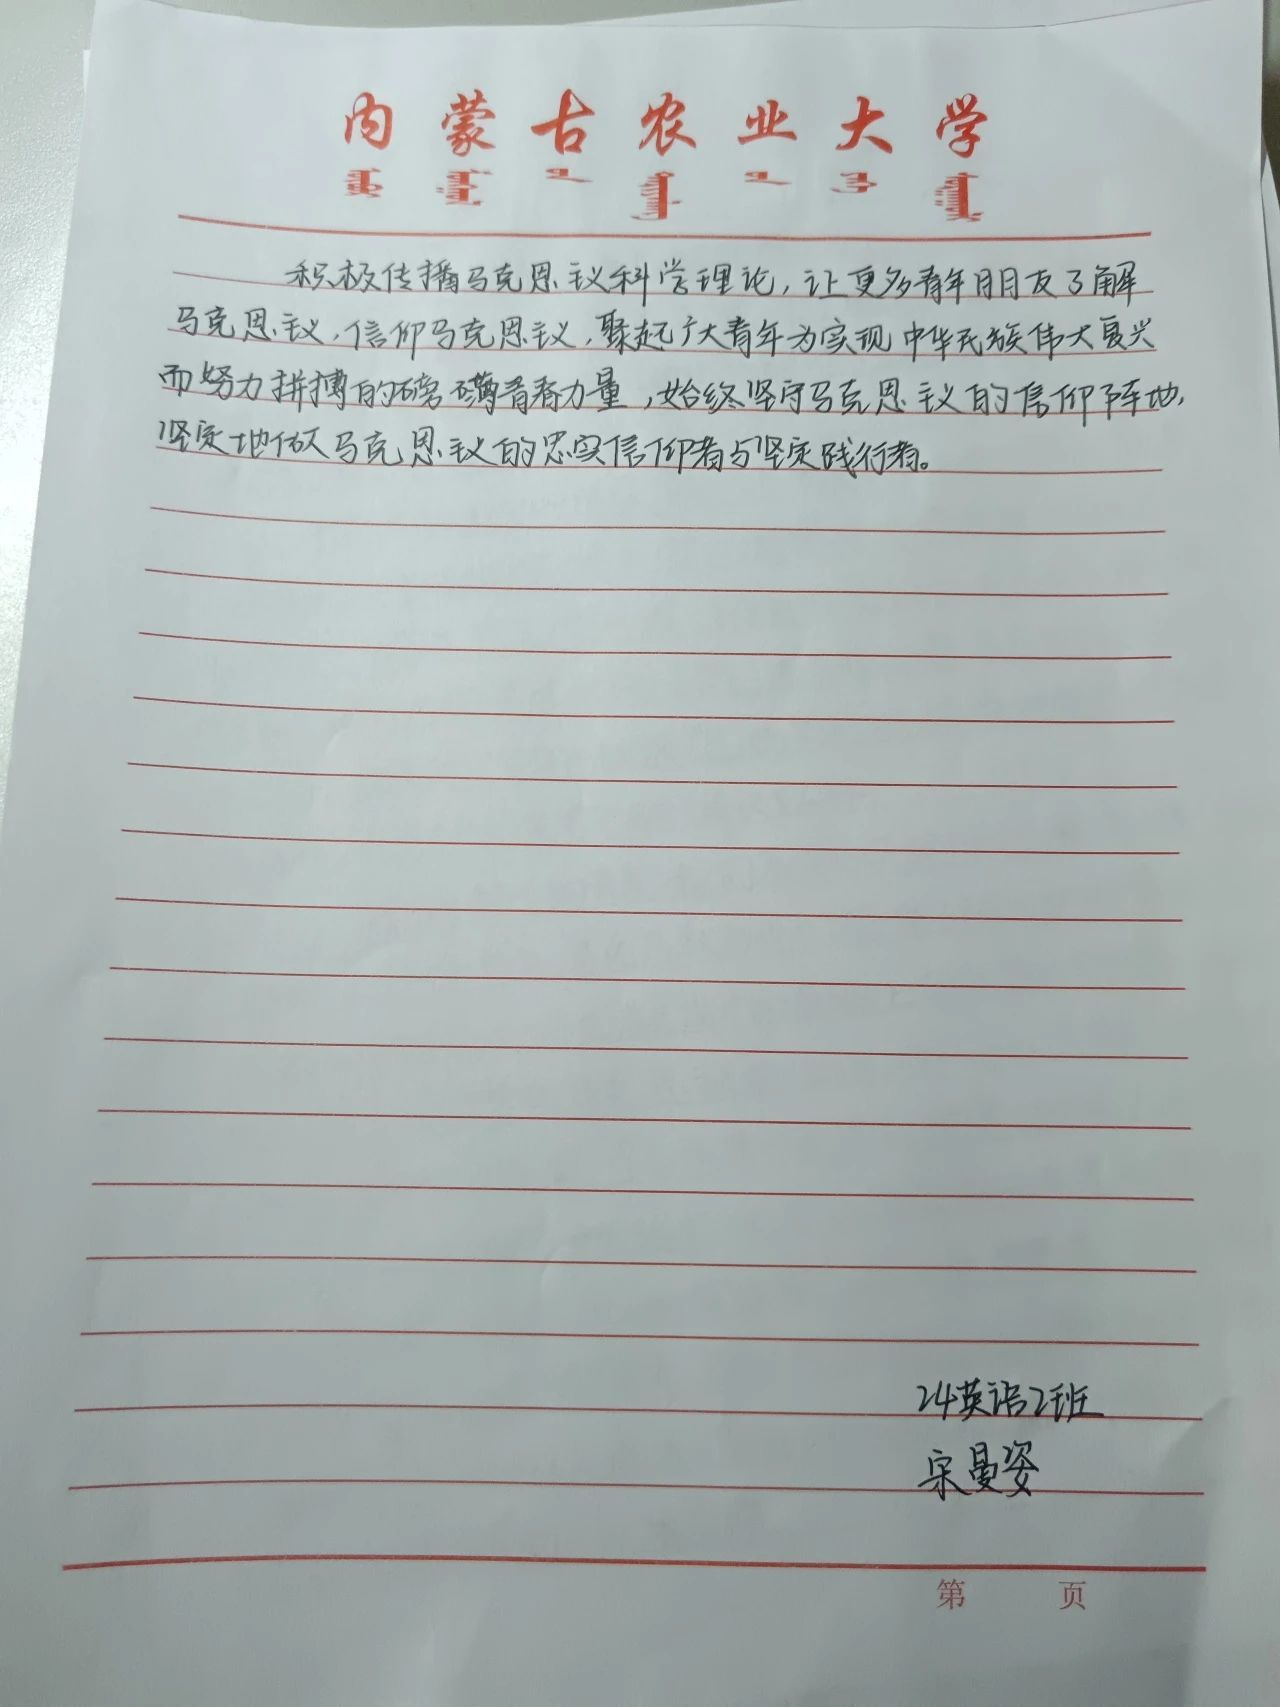 内蒙古农业大学
积极传播马克思主义科学理论，让更多青年朋友了解
马克思主义，信仰马克思主义，聚起广大青年为实现中华民族伟大复兴
而努力拼搏的磅礴青春力量，始终坚守马克思主义的信仰阵地，
坚定地做马克思主义的忠实信仰者与坚定践行者。
24英语2班
宋曼姿
第 页